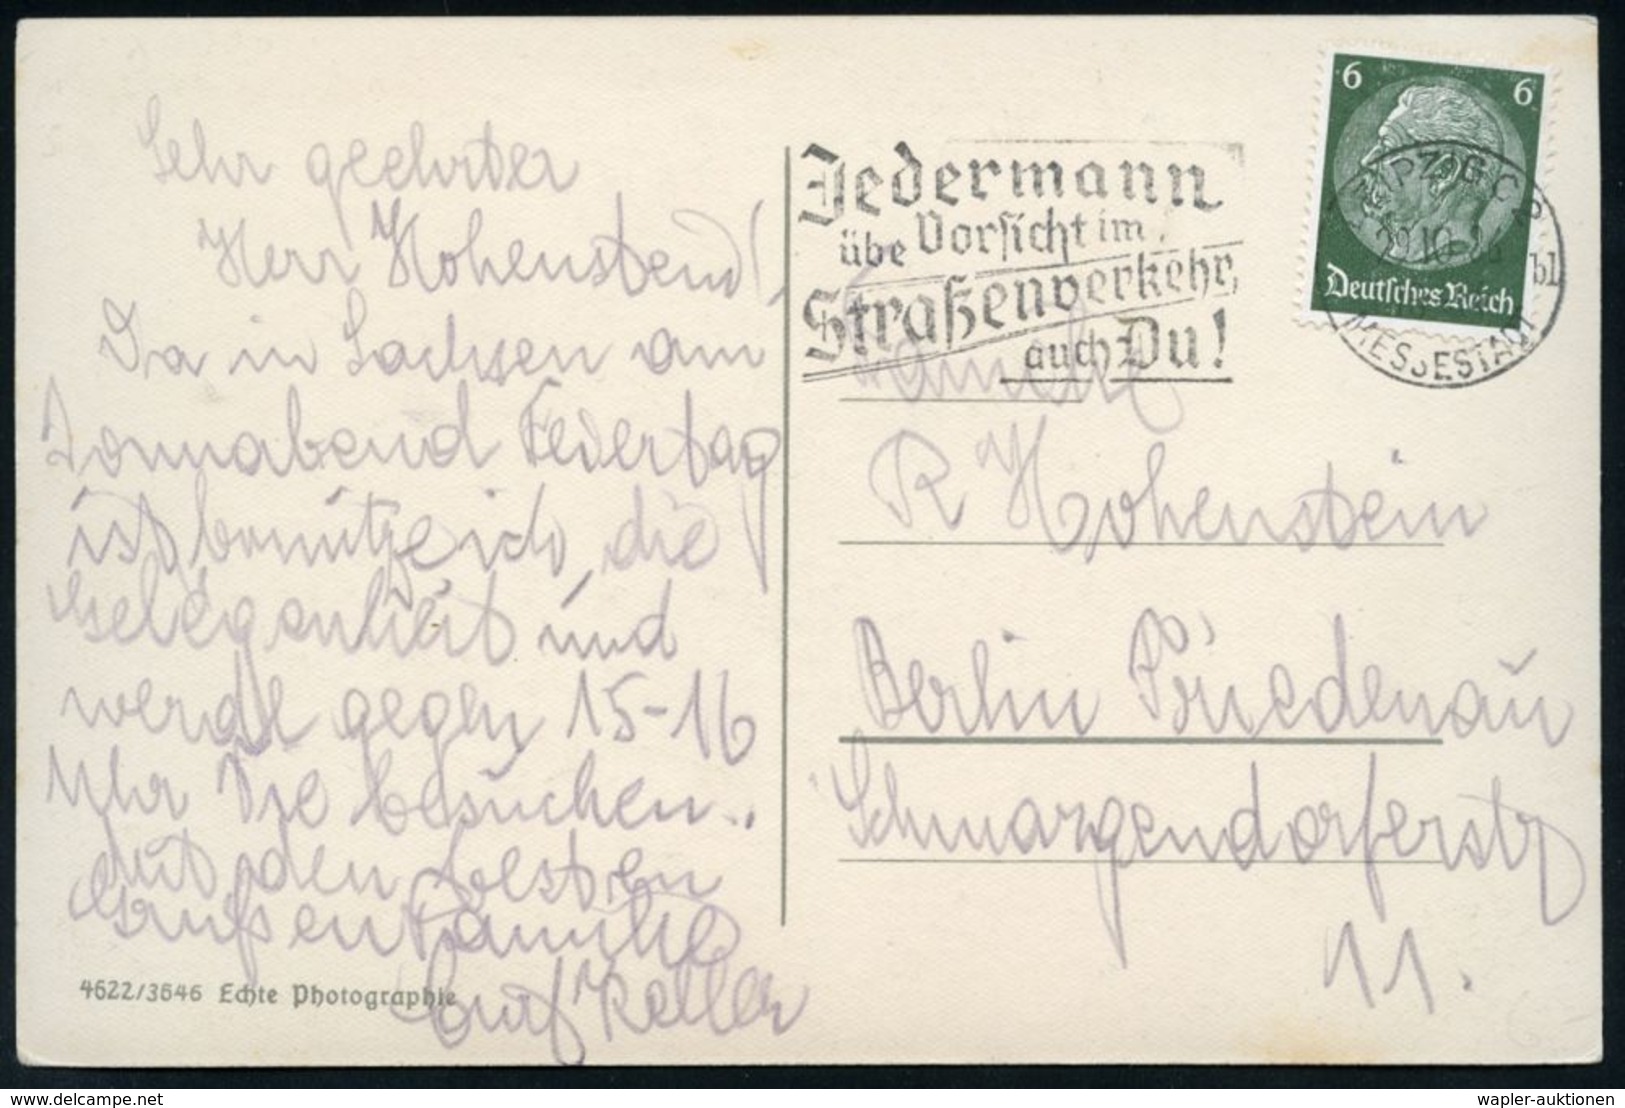 Sehr geehrter
Herr Hohenstein!
Da in Sachsen am
Sonnabend Feiertag
ist benutze ich die
Gelegenheit und
werde gegen 15-16
Uhr Sie besuchen.
Mit den besten
Grüßen Familie
Curt Keller
4622/3646 Echte Photographie
Jedermann
übe Vorsicht im
Straßenverkehr,
auch Du!
6 6
Deutsches Reich
LEIPZIG C 2
29.10.
bl
MESSESTADT
R Hohenstein
Berlin Friedenau
Schmargendorferstr
11.
wapler-auktionen.com
wapler-auktionen